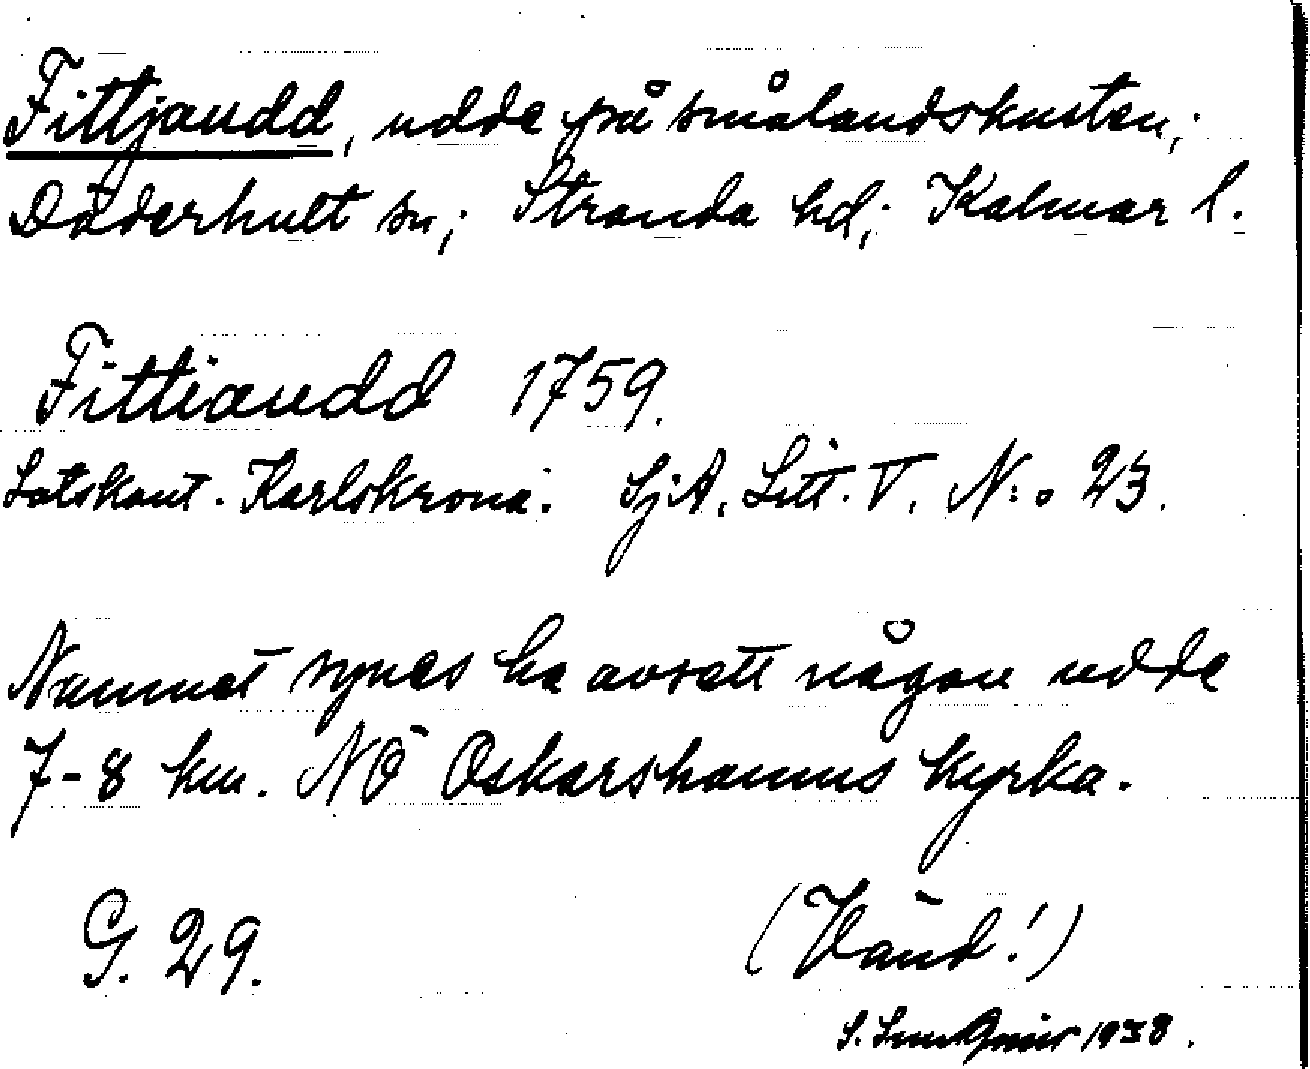 Fittjaudd, udde på smålandskusten,
Döderhult sn; Stranda hd; Kalmar l.
Fittiaudd 1759.
Lotskont. Karlskrona. SjA. Litt. V. N:o 23.
Namnet synes ha avsett någon udde
7-8 km. NÖ Oskarshamns kyrka.
G. 29. (Vänd!)
S. 1938.